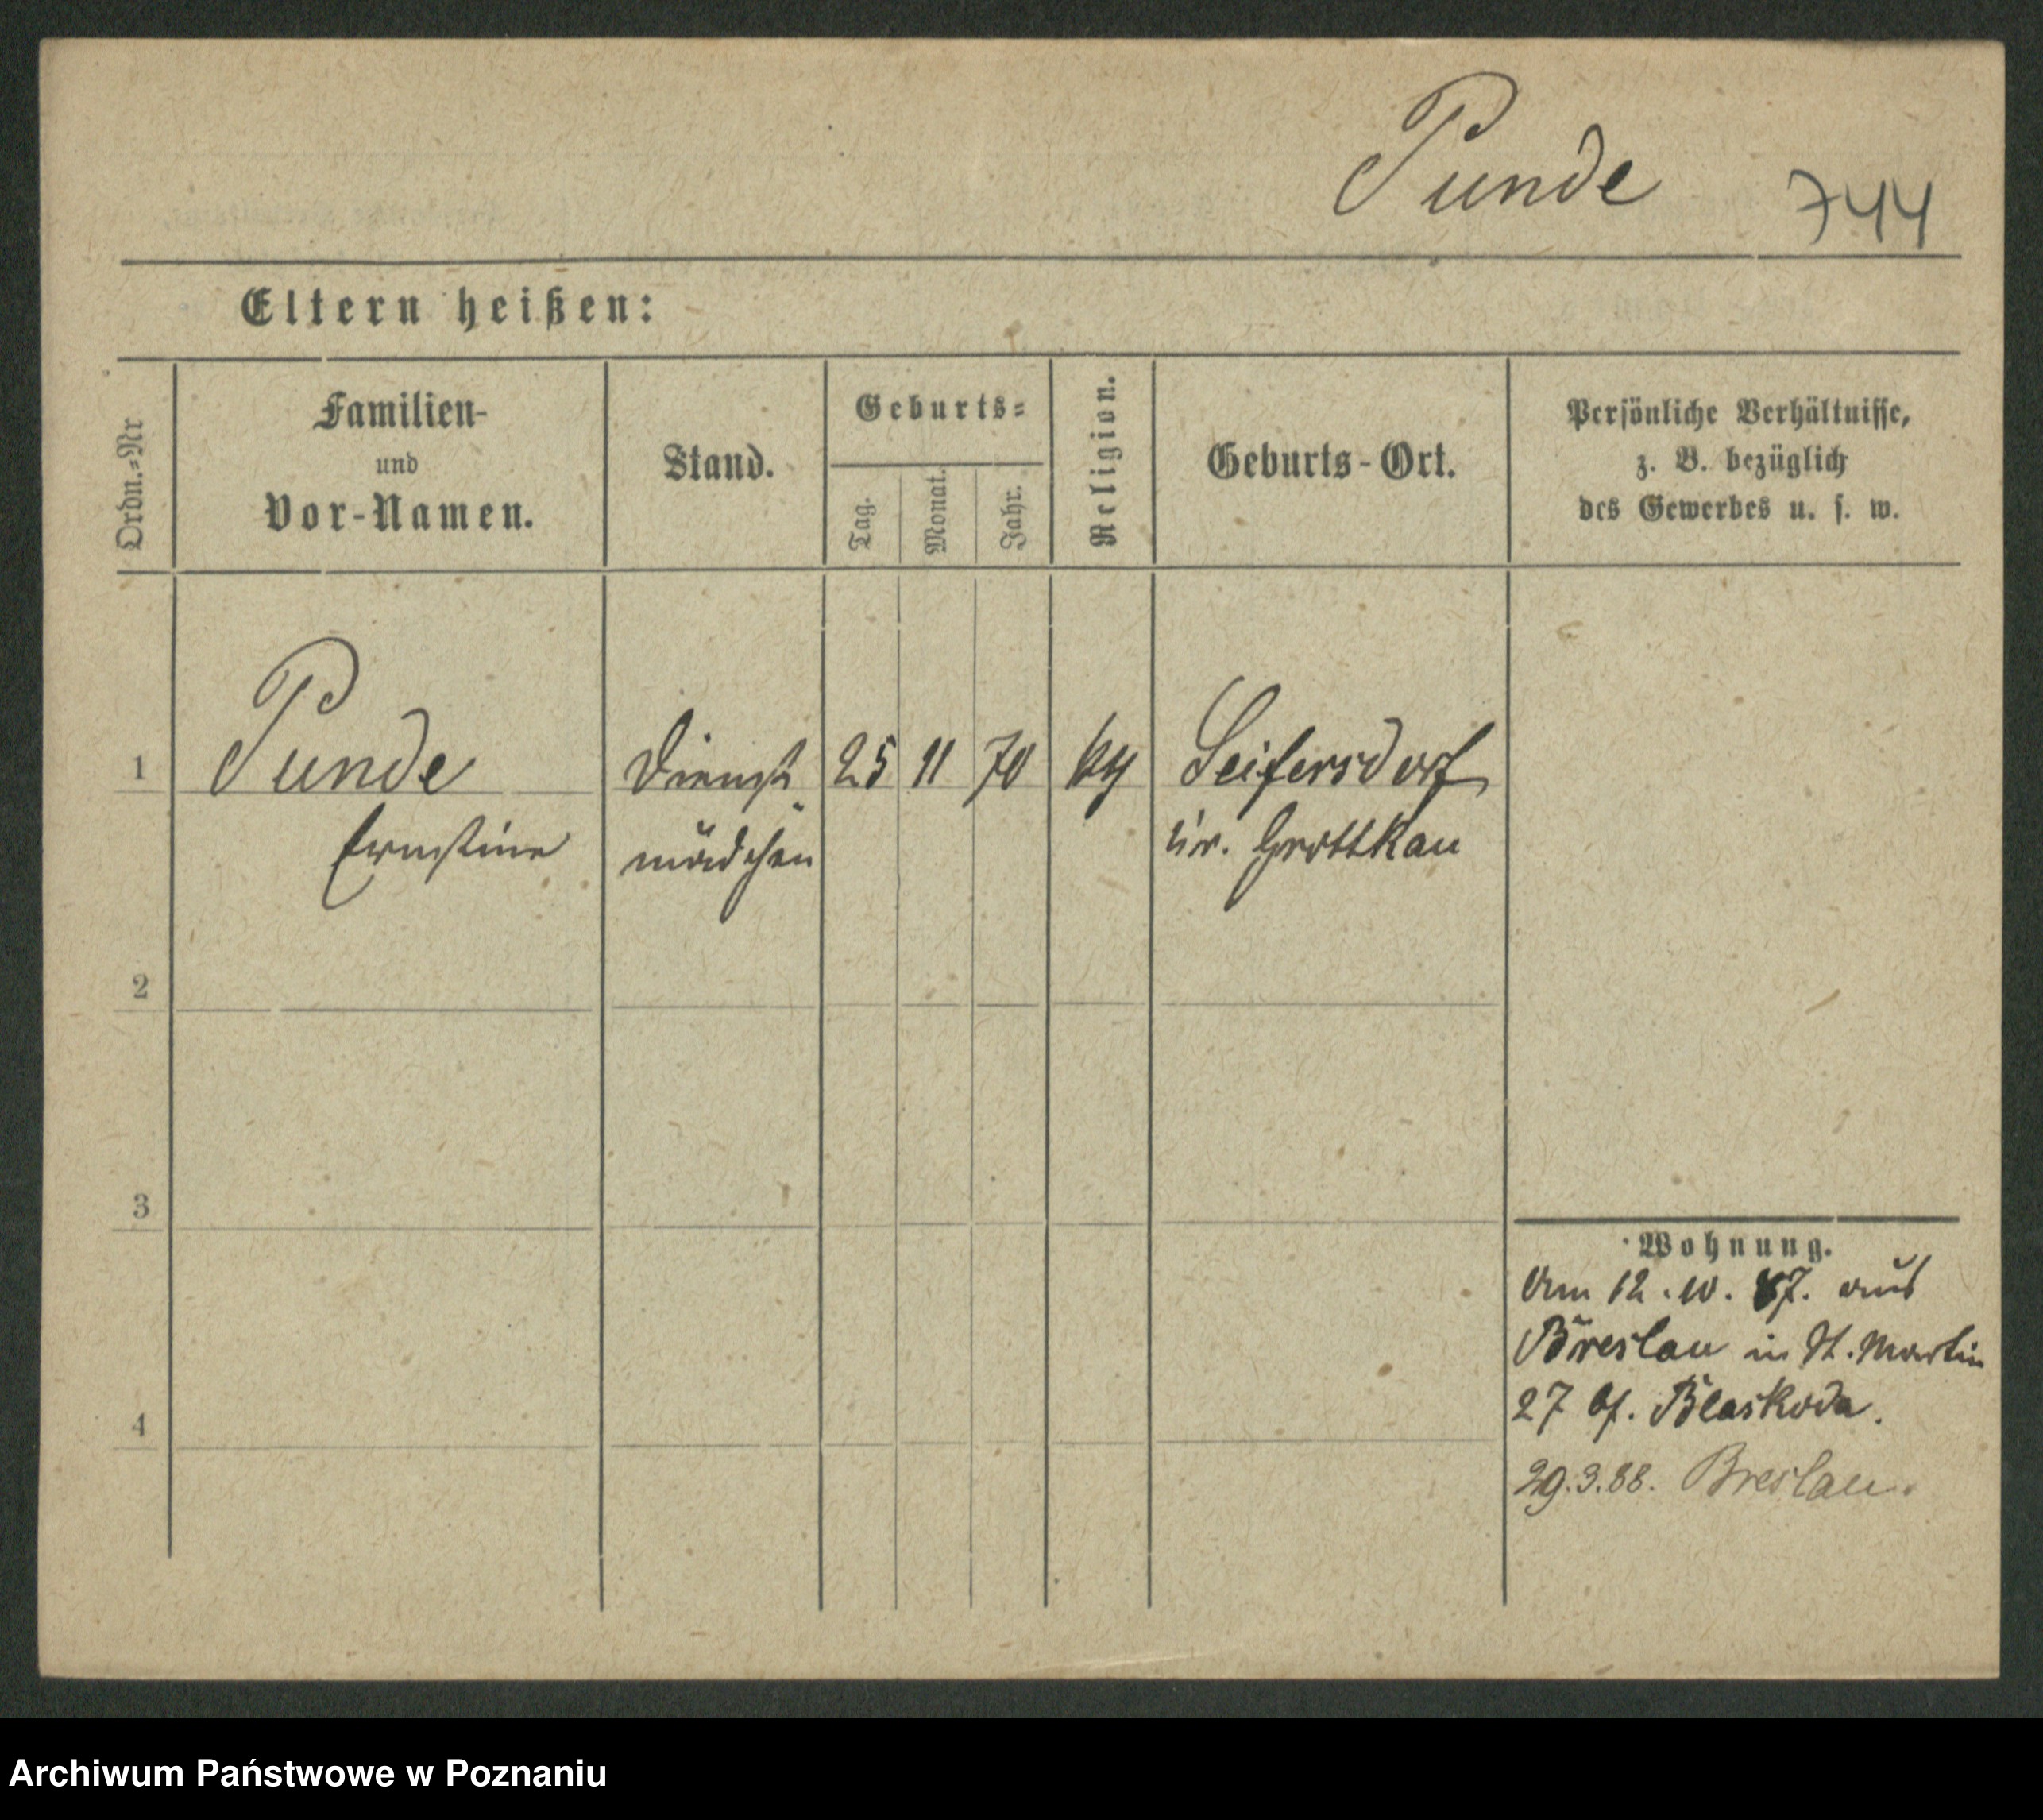 Punde 744
Eltern heißen:
Ordn.=Nr
Familien-
und
Vor-Namen.
Stand.
Geburts=
Tag.
Monat.
Jahr.
Religion.
Geburts-Ort.
Persönliche Verhältnisse,
z. B. bezüglich
des Gewerbes u. s. w.
1 Punde Dienst 25 11 70 Seifersdorf
Ernstine mädchen Grottkau
2
3
Wohnung.
Am 12.10.87. aus
Breslau in St. Martin
27 Blaskoda.
4
29.3.88. Breslau.
Archiwum Państwowe w Poznaniu